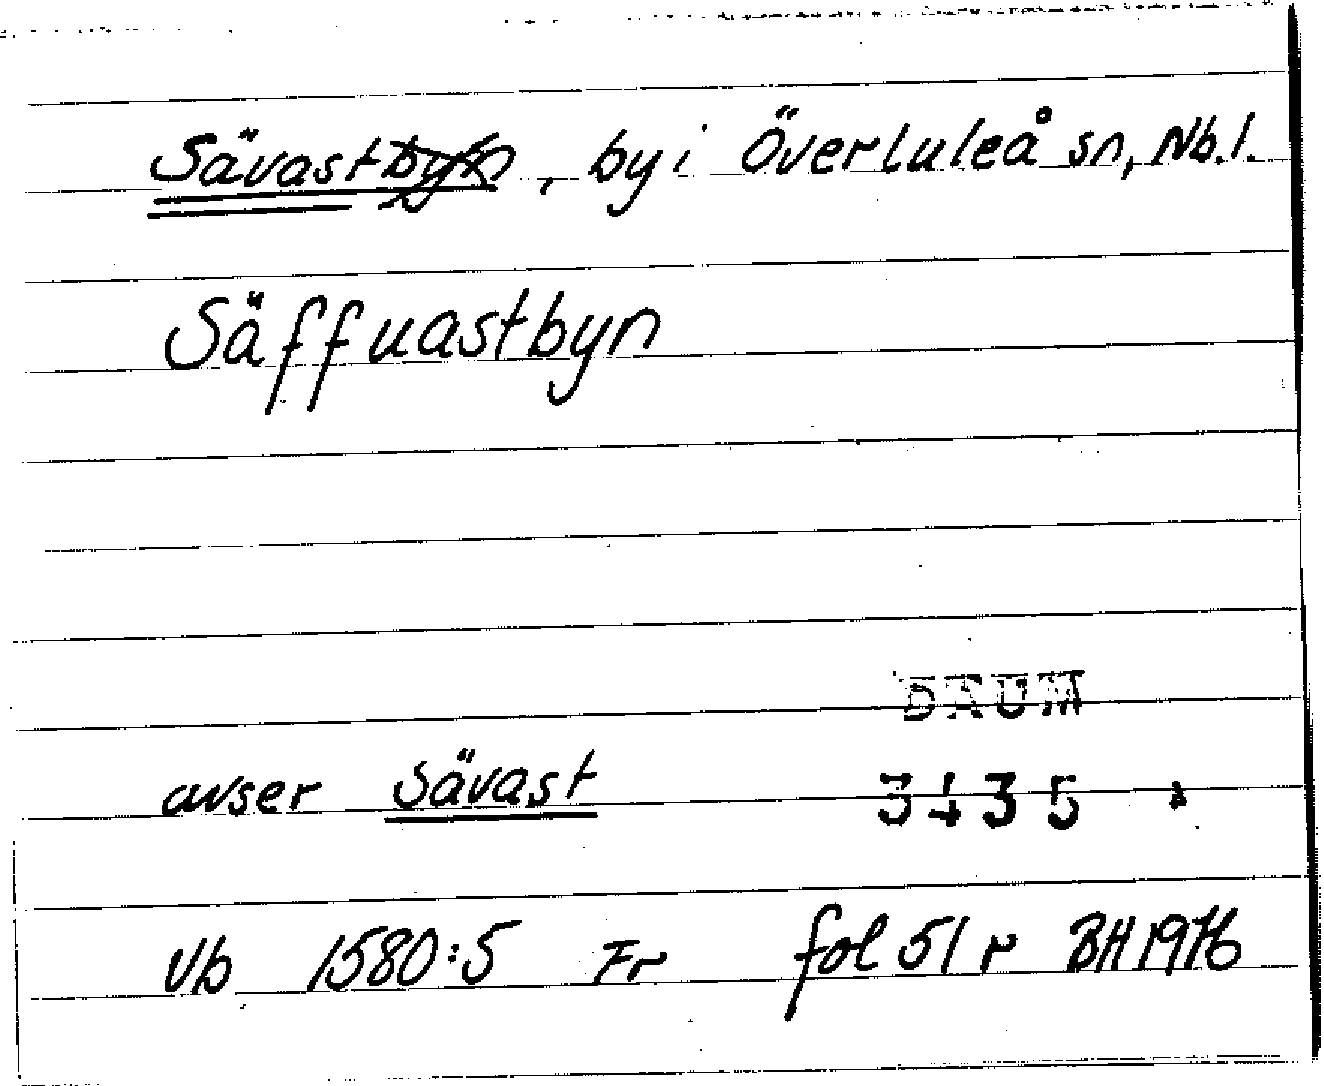 Sävastbyn, by i Överluleå sn, Nb.l.
Säffuastbyn
DAUM
avser Sävast
3435
Vb 1580:5 Fr fol 51 r BH 1976